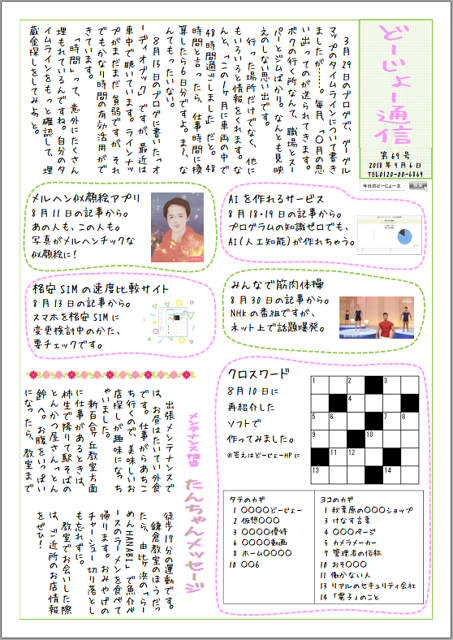 どーじょー通信
第69号
2018年9月6日
TEL0120-00-6869
今日のどーじょーネ
検索
3月29日のブログで、グーグル
マップのタイムラインについて書き
ましたが……。毎月、「〇月の思
い出」ってのが送られてきます。
ボクの行く所なんて、職場とスー
パーとジムばかり。なんとも見映
えのしない思い出です。
行った場所だけでなく、他に
もいろいろと情報をくれます。な
んと、「この1ヶ月に車両の中で
48時間過ごしました」だと。48
時間と言ったら、仕事時間に換
算したら6日分ですよ。まァ、な
んてもったいない。
8月15日のブログに書いた、「オ
ーディオブック」ですが、最近は
車中で聴いています。ラインナッ
プがまだまだ貧弱ですが、それ
でもかなり時間の有効活用がで
きています。
「時間」って、意外にたくさん
埋もれているんですね。自分のタ
イムラインをもっと確認して、埋
蔵金探しをしてみようっと。
メルヘン似顔絵アプリ
8月11日の記事から。
あの人も、この人も。
写真がメルヘンチックな
似顔絵に!
AIを作れるサービス
8月18・19日の記事から。
プログラムの知識ゼロでも、
AI(人工知能)が作れちゃう。
格安SIMの速度比較サイト
8月13日の記事から。
スマホを格安SIMに
変更検討中のかた、
要チェックです。
みんなで筋肉体操
8月30日の記事から。
NHKの番組ですが、
ネット上で話題爆発。
クロスワード
8月10日に
再紹介した
ソフトで
作ってみました。
※答えはどーじょーHPに
1 2 3
4
5 6 7 8
9 10
11 12
13 14
タテのカギ
1 〇〇〇〇どーじょー
2 仮想〇〇〇
3 〇〇〇〇優待
6 〇〇〇〇動画
8 ホーム〇〇〇〇
10 〇〇6
ヨコのカギ
1 秋葉原の〇〇〇ショップ
3 けなす言葉
4 〇〇〇ページ
5 カメラメーカー
7 管理者の俗称
10 おそ〇〇〇
11 働かない人
13 リアルのセキュリティ会社
14 「電子」のこと
メンテナンス担当
たんちゃんメッセージ
出張メンテナンスで
は、お昼はたいてい外食
です。仕事がらあちこ
ち行くので、美味しいお
店探しが趣味になっち
ゃいました。
新百合ヶ丘教室方面
に仕事があるときは、
柿生で降りて駅そばの
とんかつ屋さん「とん
鈴」へ。お腹をいっぱい
になったら、教室まで
徒歩19分の運動です。
鎌倉教室のほうだっ
たら、由比ヶ浜の「らー
めんHANABI」で魚介ベ
ースのラーメンを食べて
帰ります。おみやげの
チャーシュー切り落とし
も忘れずに。
教室でお会いした際
は、ご近所のお店情報
をぜひ!